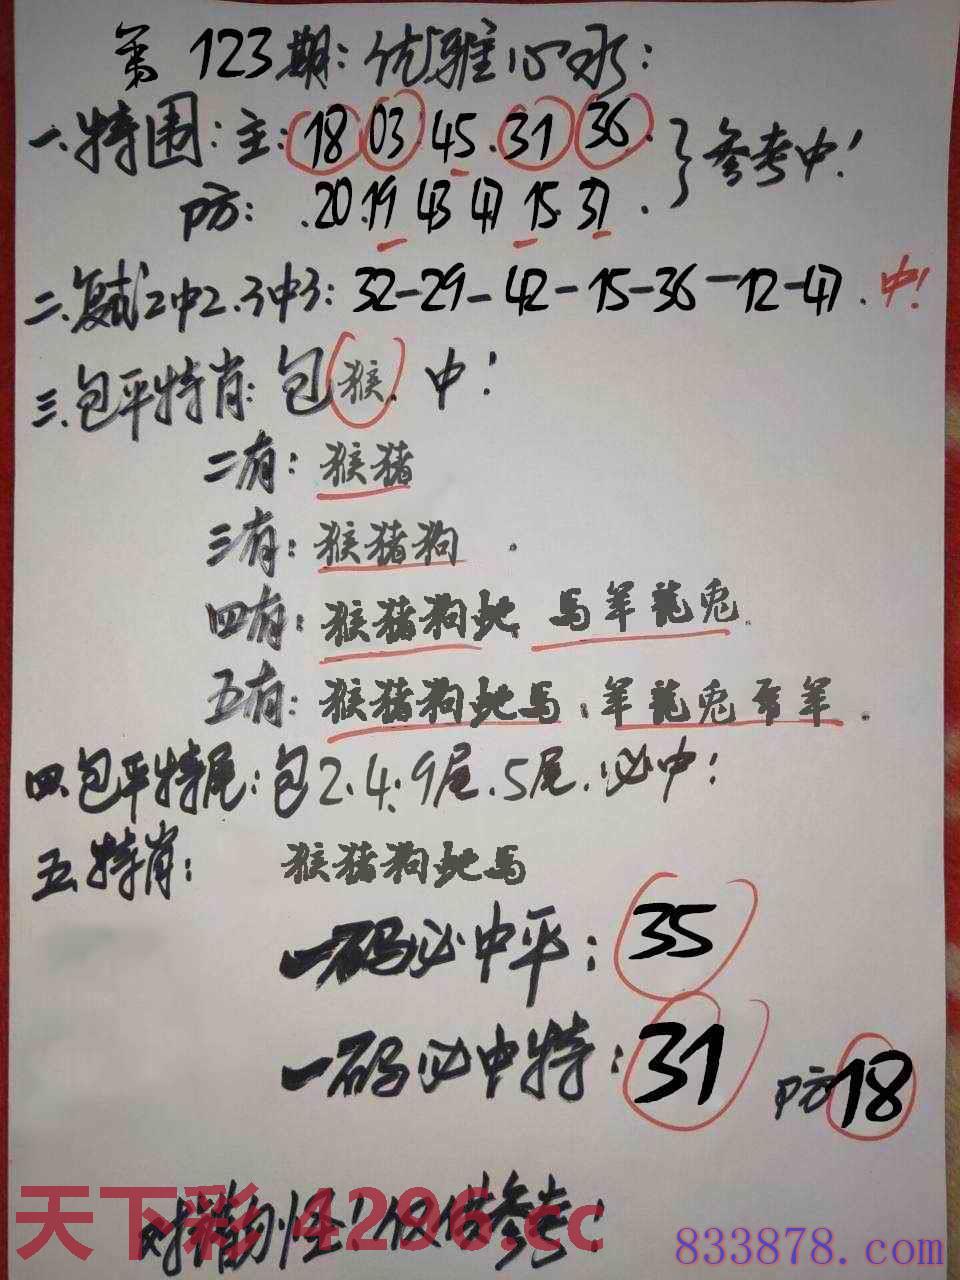 第123期:优雅心水:
一.特围:主:18 03 45.31 36.
防: .20.19 43 47 15.37 .
}参考中!
二.复试2中2.3中3: 32-29-42-15-36-12-47. 中!
三.包平特肖: 包猴. 中!
二有: 猴猪
三有: 猴猪狗 .
四有: 猴猪狗蛇. 马羊龍兎.
五有: 猴猪狗蛇马. 羊龍兎 羊.
四.包平特尾: 包2.4.9尾.5尾.必中!
五.特肖: 猴猪狗蛇马
一码必中平: 35
一码必中特: 31 防18
仅供参考!
天下彩 4296.cc
833878.com